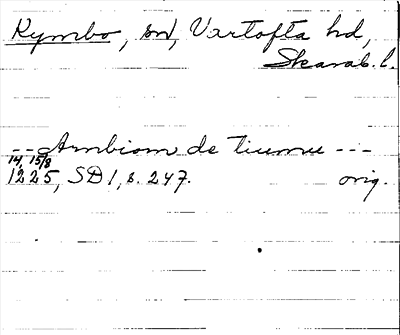 Kymbo, sn, Vartofta hd,
Skarab. l.
-- Ambiorn de Tiumu ---
14, 15/8
1225, SD 1, s. 247. orig.